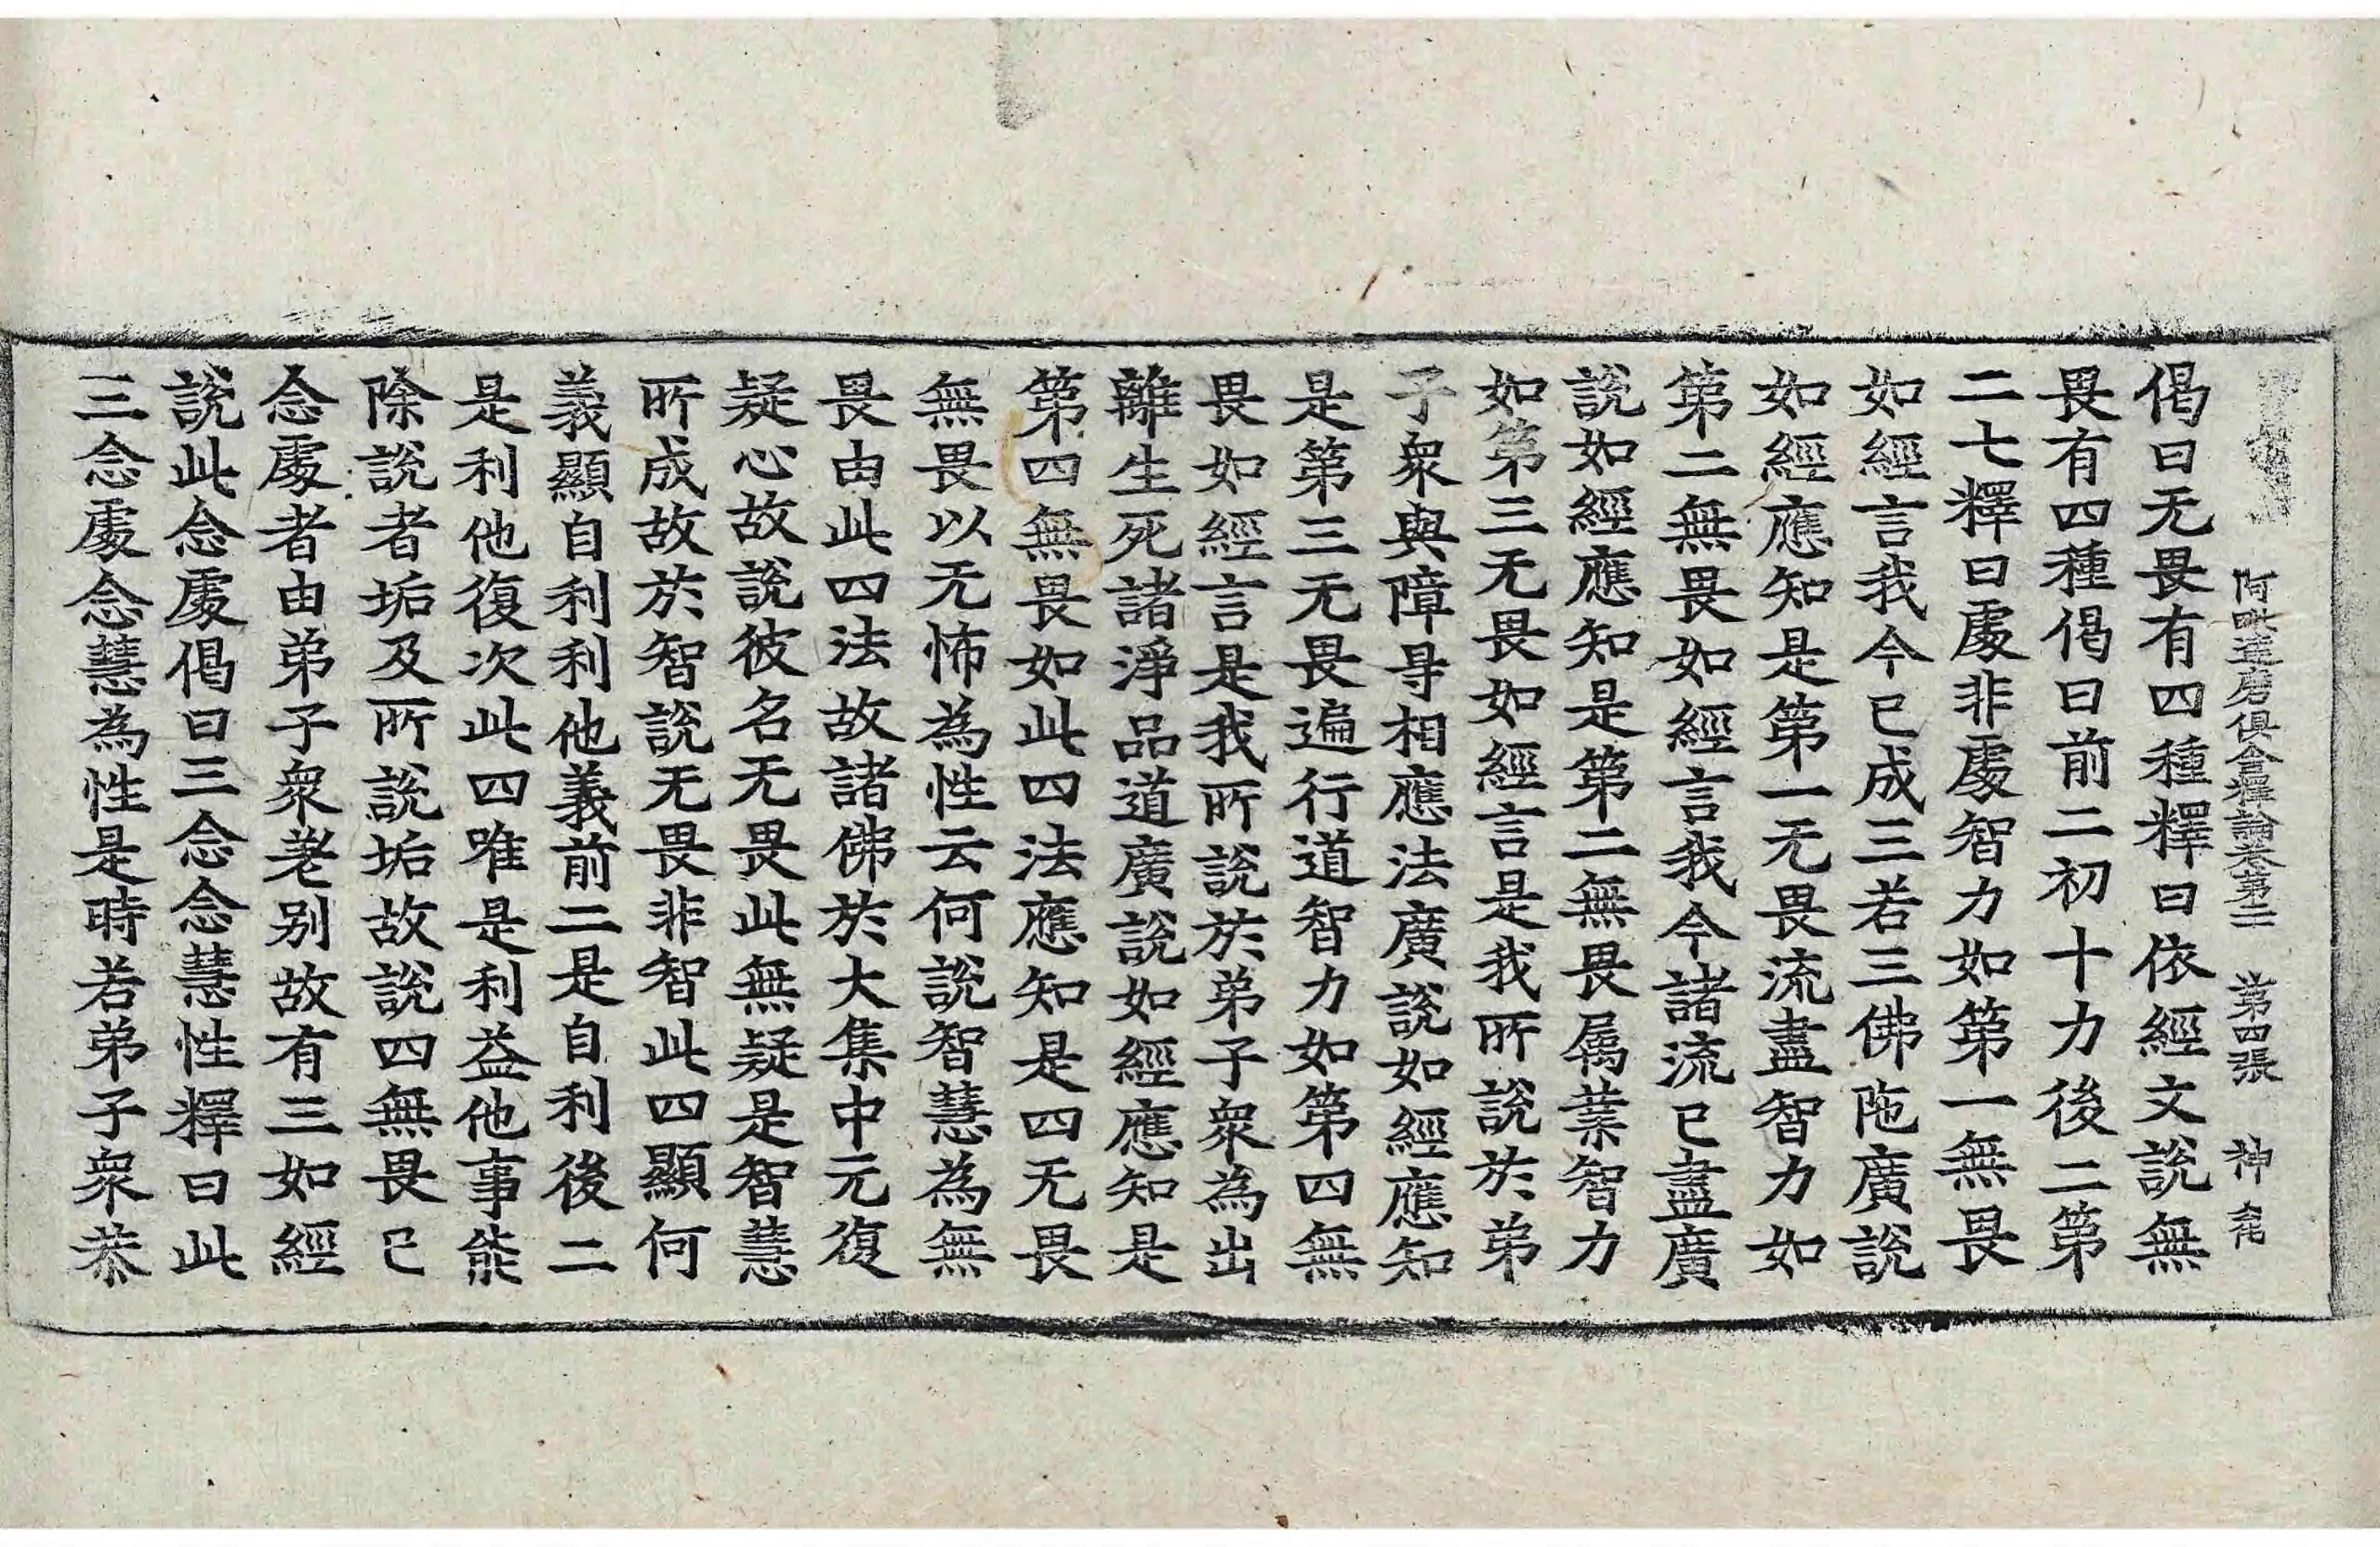 阿毗達磨俱舍釋論卷第二 第四張 神
偈曰无畏有四種釋曰依經文說無
畏有四種偈曰前二初十力後二第
二七釋曰處非處智力如第一無畏
如經言我今已成三若三佛陁廣說
如經應知是第一无畏流盡智力如
第二無畏如經言我今諸流已盡廣
說如經應知是第二無畏属業智力
如第三无畏如經言是我所說於弟
子衆與障㝵相應法廣說如經應知
是第三无畏遍行道智力如第四無
畏如經言是我所說於弟子衆為出
離生死諸淨品道廣說如經應知是
第四無畏如此四法應知是四无畏
無畏以无怖為性云何說智慧為無
畏由此四法故諸佛於大集中元復
疑心故說彼名无畏此無疑是智慧
所成故於智說无畏非智此四顯何
義顯自利利他義前二是自利後二
是利他復次此四唯是利益他事能
除說者垢及所說垢故說四無畏已
念處者由弟子衆老別故有三如經
說此念處偈曰三念念慧性釋曰此
三念處念慧為性是時若弟子衆恭